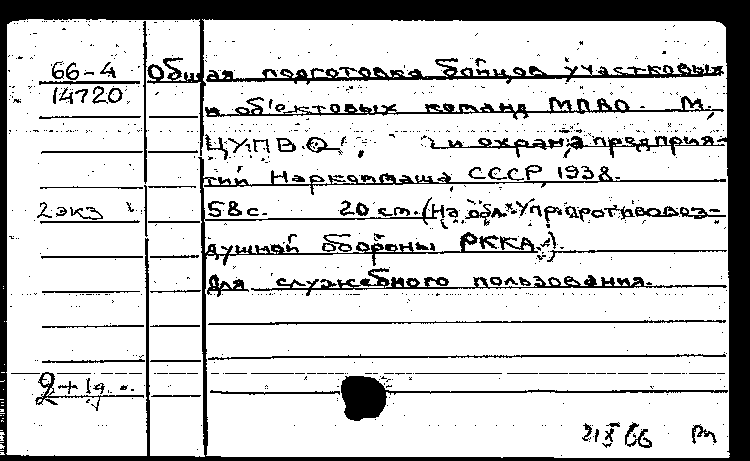 66-4 Общая подготовка бойцов участковых
14720 и об'ектовых команд МПВО. М.,
ЦУПВО, и охрана предприя-
тий Наркоммаша СССР, 1938.
2 экз 58 с. 20 см. (На обл: Упр. противовоз-
душной обороны РККА.).
Для служебного пользования.
2 + 1д
21 X 66